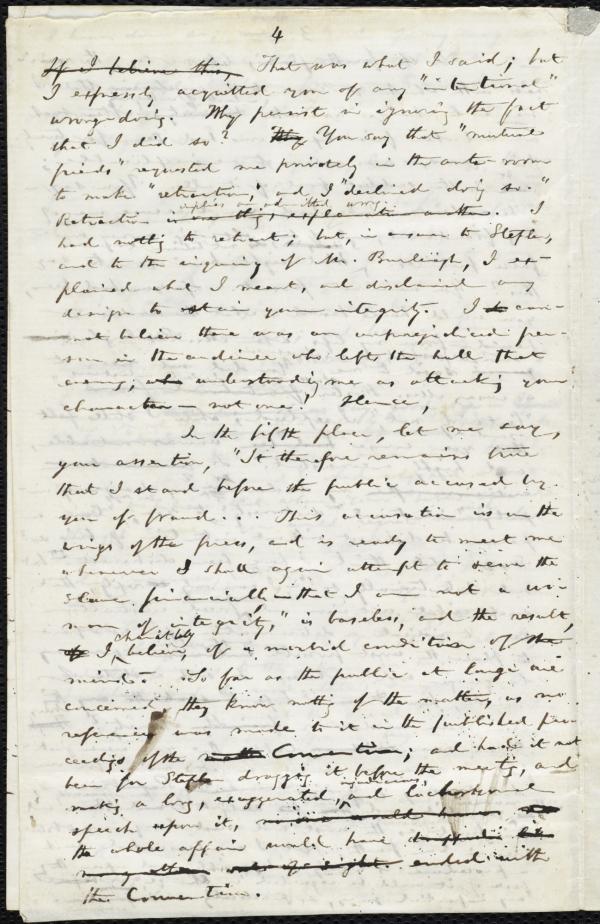 4
If I believe this, That was what I said; but
I expressly acquitted you of any "intentional"
wrong-doing. Why persist in ignoring the fact
that I did so? Why You say that "mutual
friends" requested me privately in the ante-room
to make "retraction," and I "declined doing so."
implies an admitted wrong.
Retraction is one thing, explanation another. I
had nothing to retract; but, in answer to Stephen,
and to the inquiry of Mr. Burleigh, I ex-
plained what I meant, and disclaimed any
design to stain your integrity. I do can-
not believe there was an unprejudiced per-
son in the audience who left the hall that
evening, who understanding me as attacking your
character — not one! Hence,
In the fifth place, let me say,
your assertion, "It therefore remains true
that I stand before the public accused by
you of fraud . . . This accusation is on the
wings of the press, and is ready to meet me
wherever I shall again attempt to serve the
slave financially — that I am not a wo-
man of integrity," is baseless, and the result,
charitably
I believe, of a morbid condition of the
mind. So far as the public at large are
concerned, they know nothing of the matter, as no
reference was made to it in the published pro-
ceedings of the Convention; and had it not
been for Stephen dragging it before the meeting, and
making a long, exaggerated, and lachrymose
speech upon it,
the whole affair would have
ended with
the Convention.